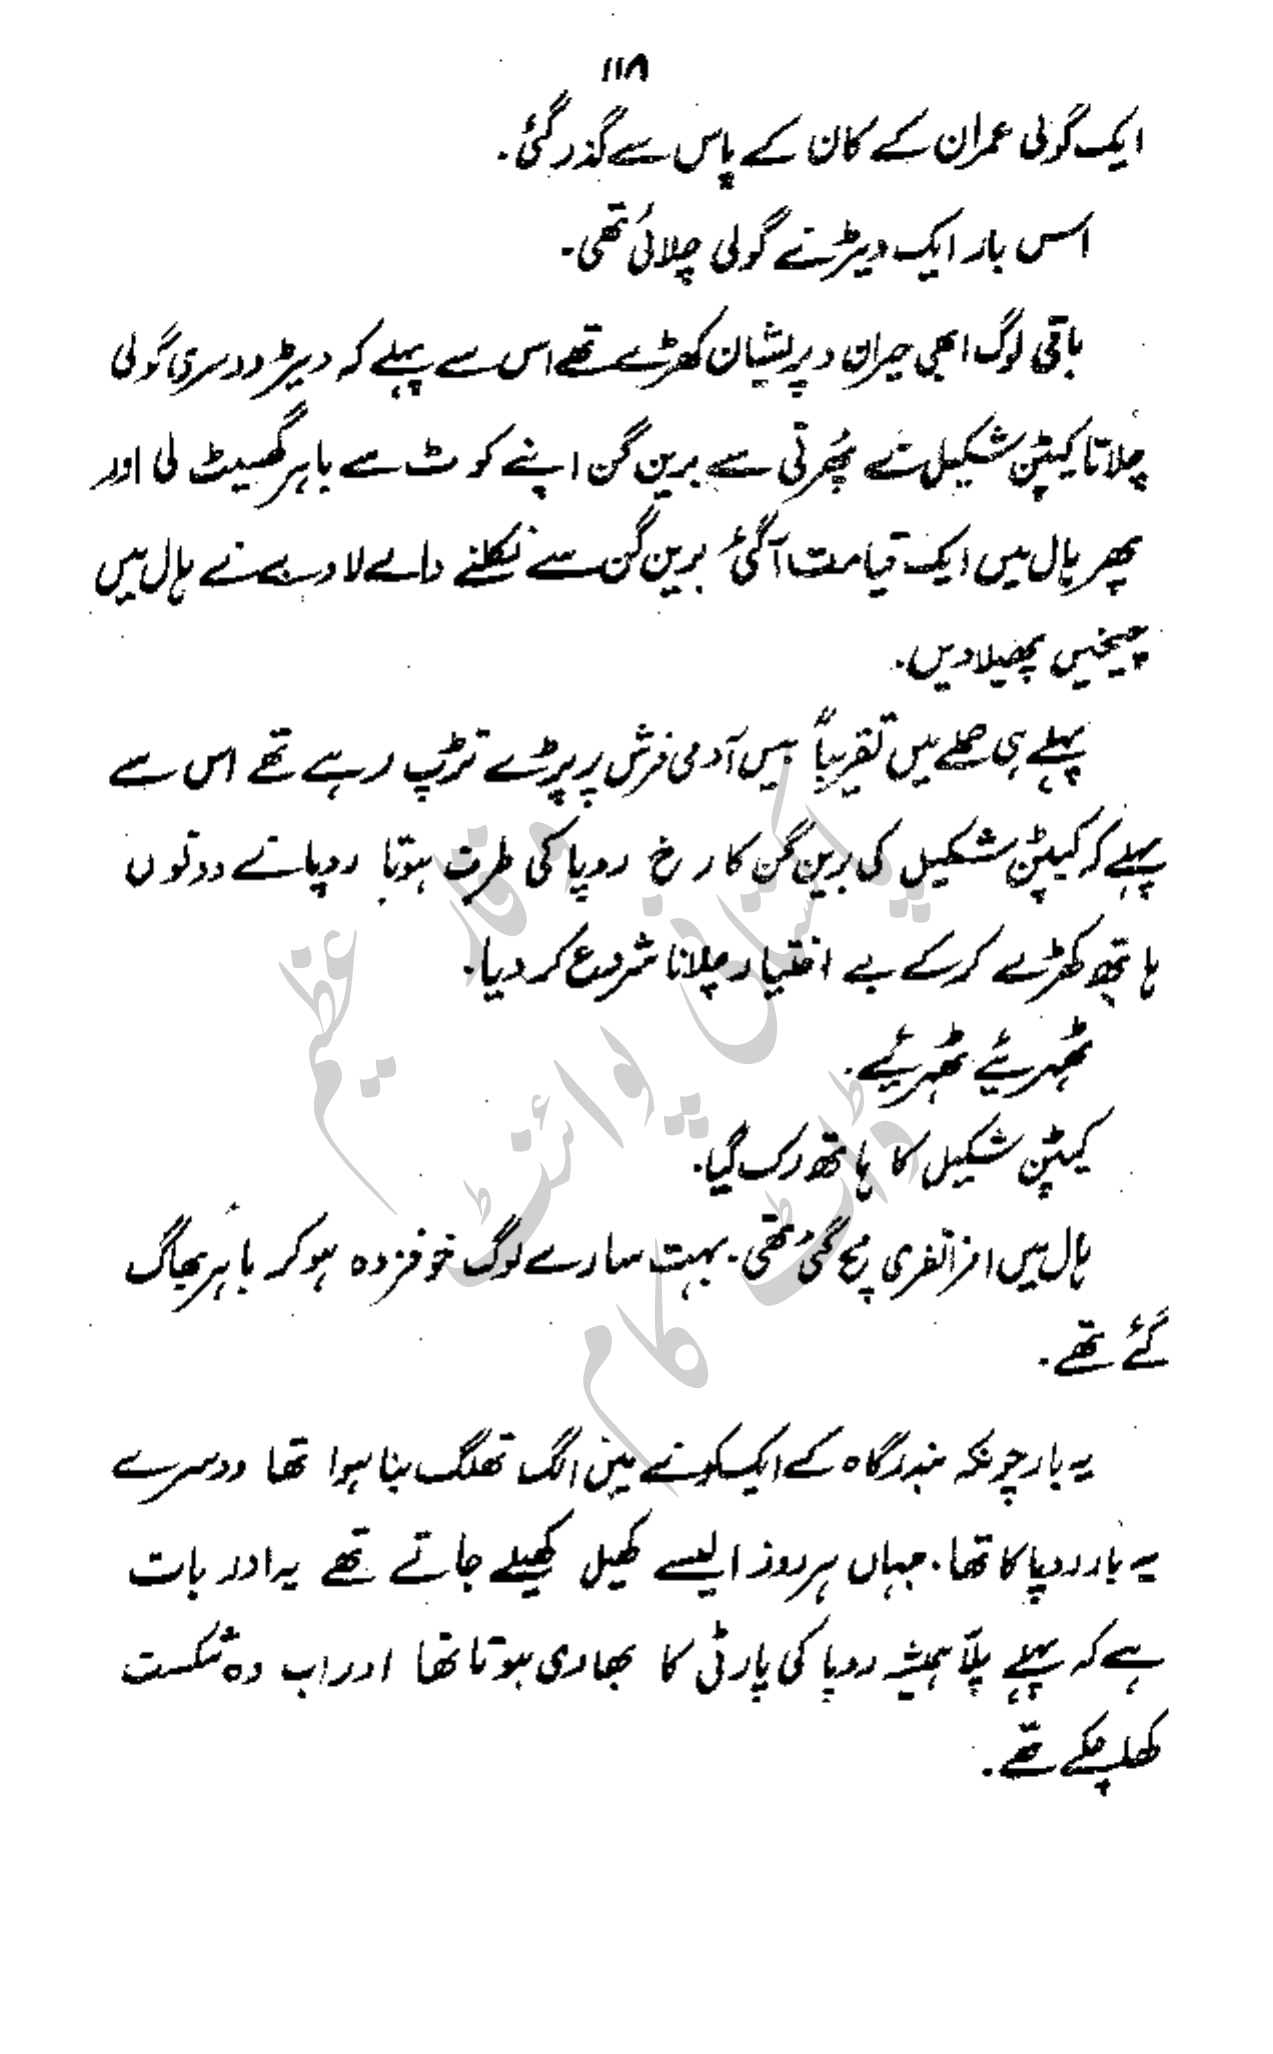 ۱۱۸
ایک گولی عمران کے کان کے پاس سے گذر گئی۔
اس بار ایک ویٹر نے گولی چلائی تھی۔
باقی لوگ ابھی حیران و پریشان کھڑے تھے اس سے پہلے کہ ویٹر دوسری گولی
چلاتا کیپٹن شکیل نے پھرتی سے برین گن اپنے کوٹ سے باہر گھسیٹ لی اور
پھر ہال میں ایک قیامت آگئی برین گن سے نکلنے والے لاوے نے ہال میں
چیخیں پھیلا دیں۔
پہلے ہی حملے میں تقریباً بیس آدمی فرش پر پڑے تڑپ رہے تھے اس سے
پہلے کہ کیپٹن شکیل کی برین گن کا رخ روپا کی طرف ہوتا روپا نے دونوں
ہاتھ کھڑے کرکے بے اختیار چلانا شروع کر دیا۔
ٹھہریئے ٹھہریئے۔
کیپٹن شکیل کا ہاتھ رک گیا۔
ہال میں افراتفری مچ گئی تھی۔ بہت سارے لوگ خوفزدہ ہو کر باہر بھاگ
گئے تھے۔
یہ بار چونکہ بندرگاہ کے ایک کونے میں الگ تھلگ بنا ہوا تھا دوسرے
یہ بار روپا کا تھا۔ جہاں ہر روز ایسے کھیل کھیلے جاتے تھے یہ اور بات
ہے کہ پہلے پلّا ہمیشہ روپا کی پارٹی کا بھاری ہوتا تھا اور اب وہ شکست
کھا چکے تھے۔
وقار عظیم
پاکستانی پوائنٹ
ڈاٹ کام